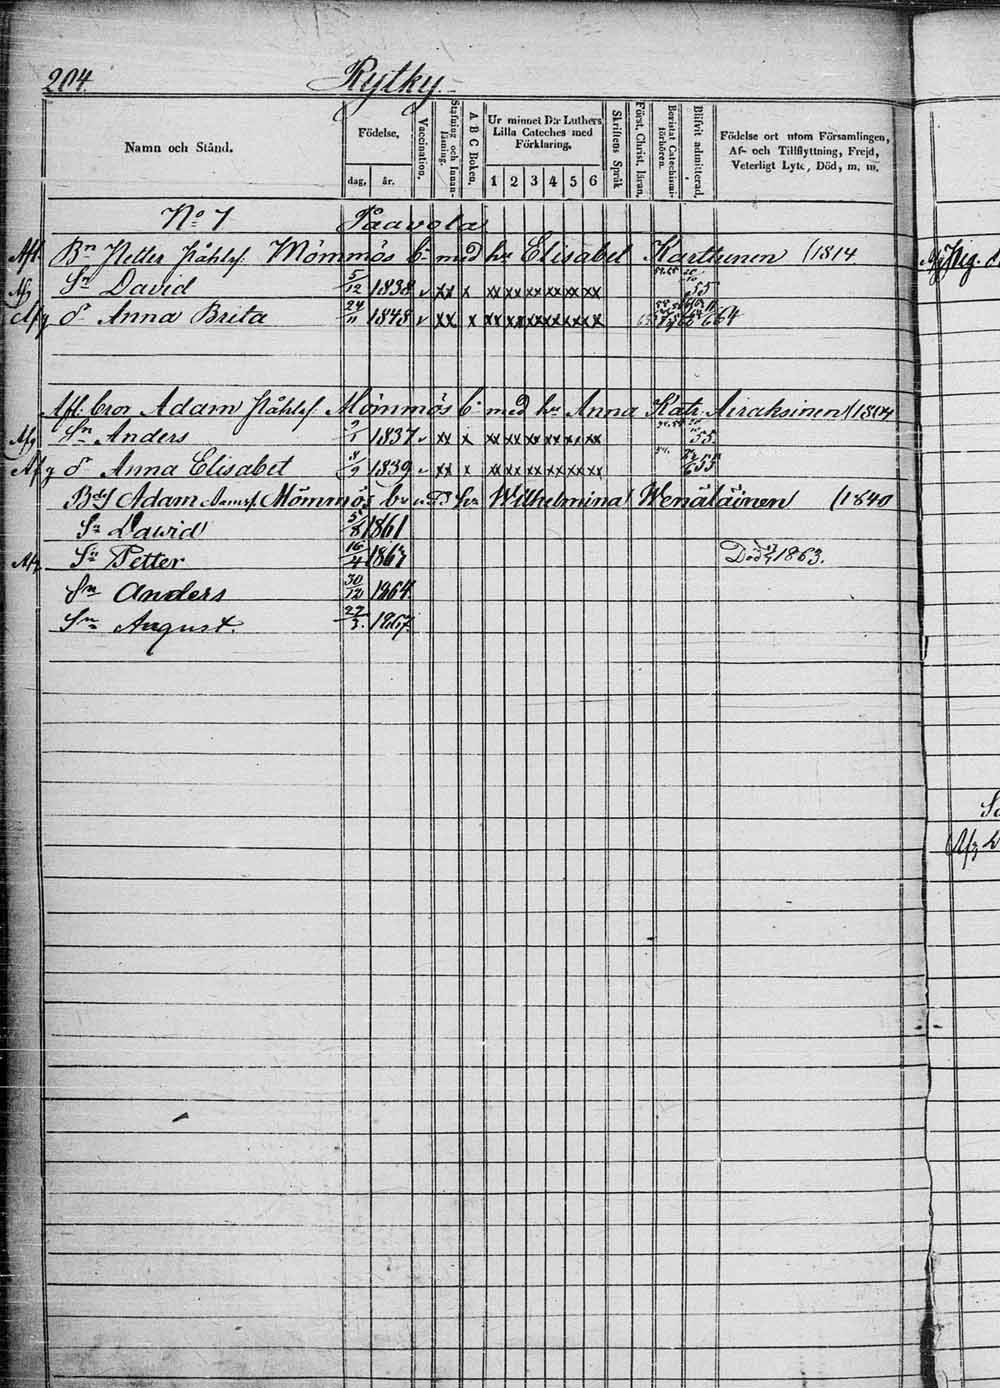 204.
Rytky.
Namn och Stånd.
Födelse,
dag. år.
Vaccination.
Stafning och Innanläsning.
A B C Boken.
Ur minnet D:r Luthers
Lilla Cateches med
Förklaring.
1 2 3 4 5 6
Skriftens Språk
Först. Christ. läran.
Bevistat Catechismiförhören.
Blifvit admitterad.
Födelse ort utom Församlingen,
Af- och Tillflyttning, Frejd,
Veterligt Lyte, Död, m. m.
No 7 Paavola
Afl. Bn Petter Påhlsf. Mömmös b. med hu Elisabet Karttunen (1814
Afg Sn David 5/12 1838 v xx x xx xx xx xx xx xx 55
Afg dr Anna Brita 24/11 1848 v xx x xx xx xx xx xx xx 64
Afl. bror Adam Påhlsf Mömmös b. med hu Anna Katr. Airaksinen (1804
Afg Sn Anders 2/1 1837 v xx x xx xx xx xx xx xx 55
Afg dr Anna Elisabet 8/2 1839 v xx x xx xx xx xx xx xx 54. 655
Adam Mömmös b. med hu Wilhelmina Wenäläinen (1840
Sn Dawid 5/8 1861
Afg. Sn Petter 16/4 1863 Död 1863.
Sn Anders 30/12 1864.
Sn August. 27/3. 1867.